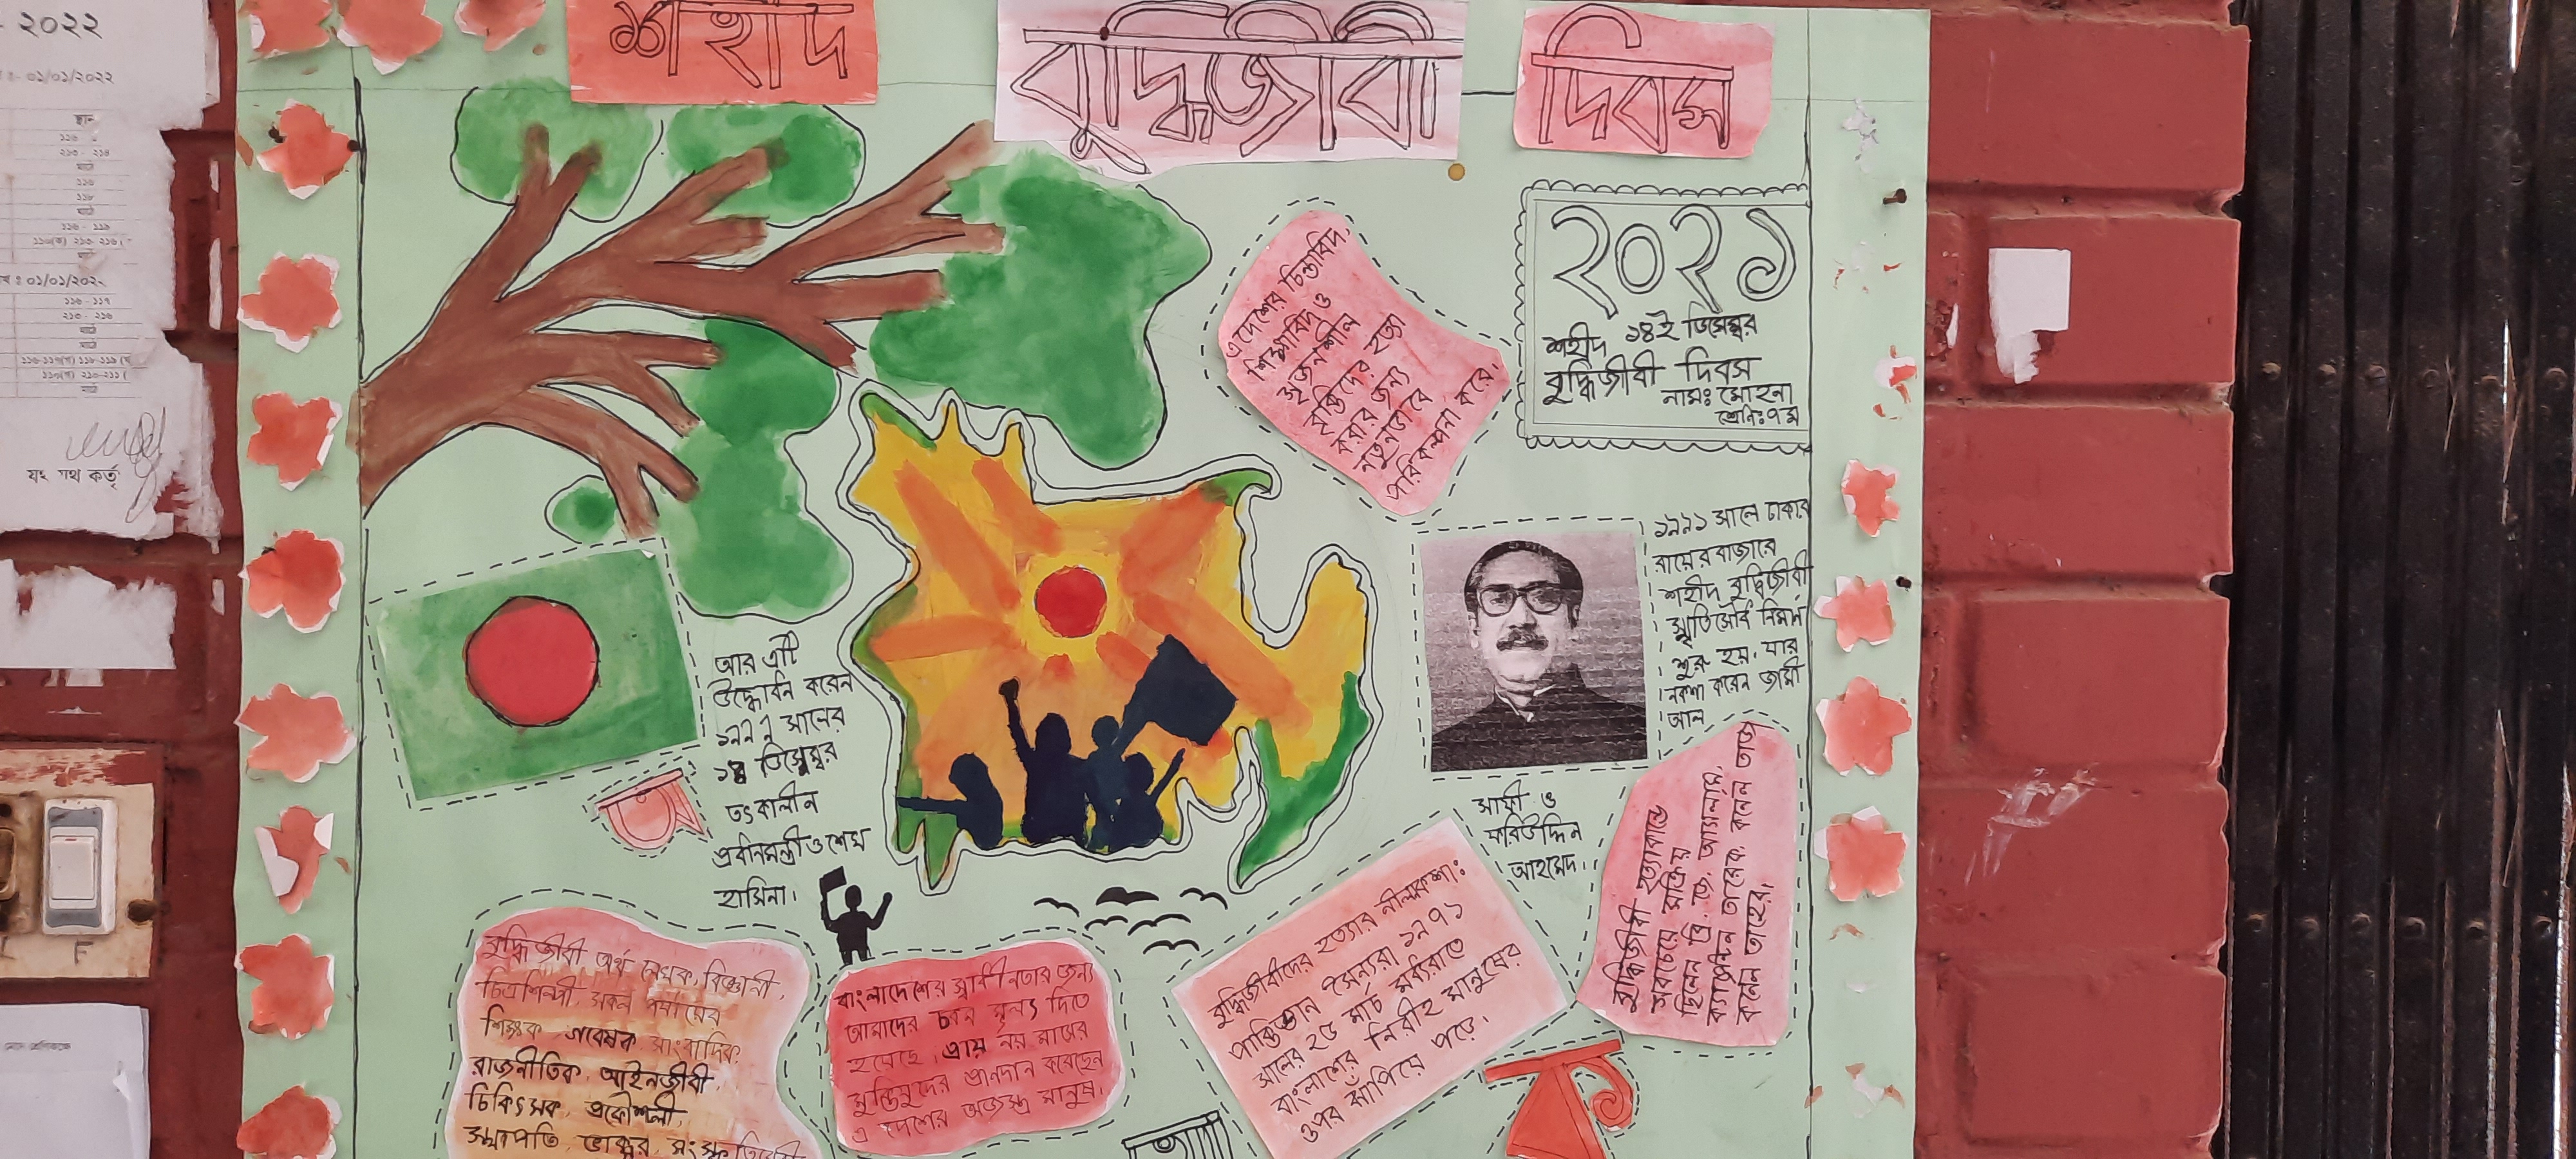 শহীদ
বুদ্ধিজীবী
দিবস
২০২১
১৪ই ডিসেম্বর
শহীদ
বুদ্ধিজীবী দিবস
নামঃ মোহনা
শ্রেনিঃ ৭ম
এদেশের চিন্তাবিদ,
শিক্ষাবিদ ও
সৃজনশীল
করার জন্য
নতুনভাবে
পরিকল্পনা করে।
১৯৯১ সালে ঢাকার
রায়ের বাজারে
শহীদ বুদ্ধিজীবী
স্মৃতিসৌধ নির্মান
শুরু হয়। যার
নকশা করেন জামী
আল
সাফী ও
ফরিউদ্দিন
আহমেদ।
আর এটি
উদ্ভোধন করেন
১৯৯৭ সালের
১৪ ডিসেম্বর
তৎকালীন
প্রধানমন্ত্রী ও শেখ
হাসিনা।
অ
বুদ্ধিজীবী হত্যাকান্ডে
সবচেয়ে সক্রিয়
ছিলেন ব্রি. জে. আসলাম,
ক্যাপ্টেন তারেক, কর্নেল তাজ
কর্নেল তাহের।
বুদ্ধিজীবী অর্থ লেখক, বিজ্ঞানী,
চিত্রশিল্পী, সকল পর্যায়ের
শিক্ষক গবেষক সাংবাদিক,
রাজনীতিক, আইনজীবী,
চিকিৎসক, প্রকৌশলী,
স্থাপতি, ভাস্কর,
বাংলাদেশের স্বাধীনতার জন্য
আমাদের চরম মূল্য দিতে
হয়েছে। প্রায় নয় মাসের
মুক্তিযুদ্ধের প্রানদান করেছেন
এ দেশের অজস্র মানুষ।
বুদ্ধিজীবীদের হত্যার নীলনকশা:
পাকিস্তান সৈন্যরা ১৯৭১
সালের ২৫ মার্চ মধ্যরাতে
বাংলাশের নিরীহ মানুষের
ওপর ঝাঁপিয়ে পড়ে।
ক
২০২২
০১/০১/২০২২
স্থান